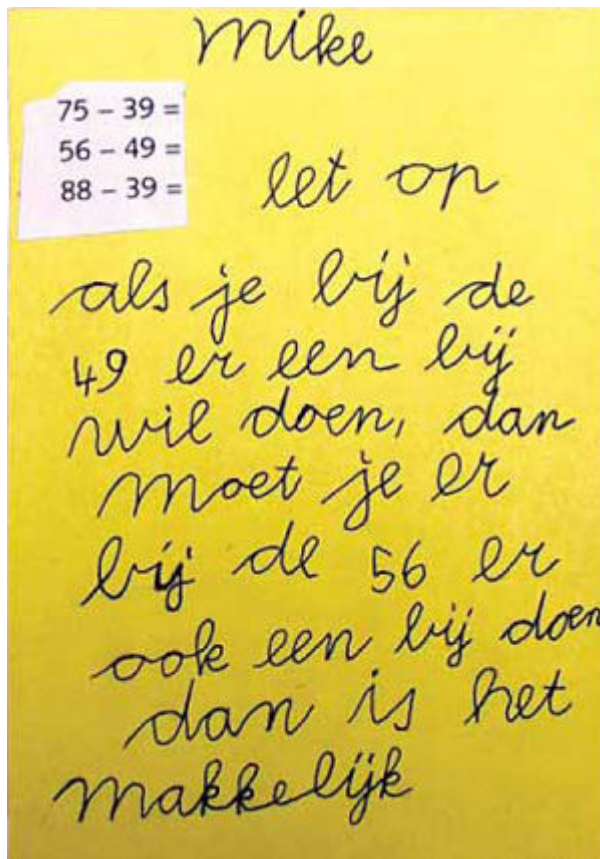 Mike
75 – 39 =
56 – 49 =
88 – 39 =
let op
als je bij de
49 er een bij
wil doen, dan
moet je er
bij de 56 er
ook een bij doen
dan is het
makkelijk